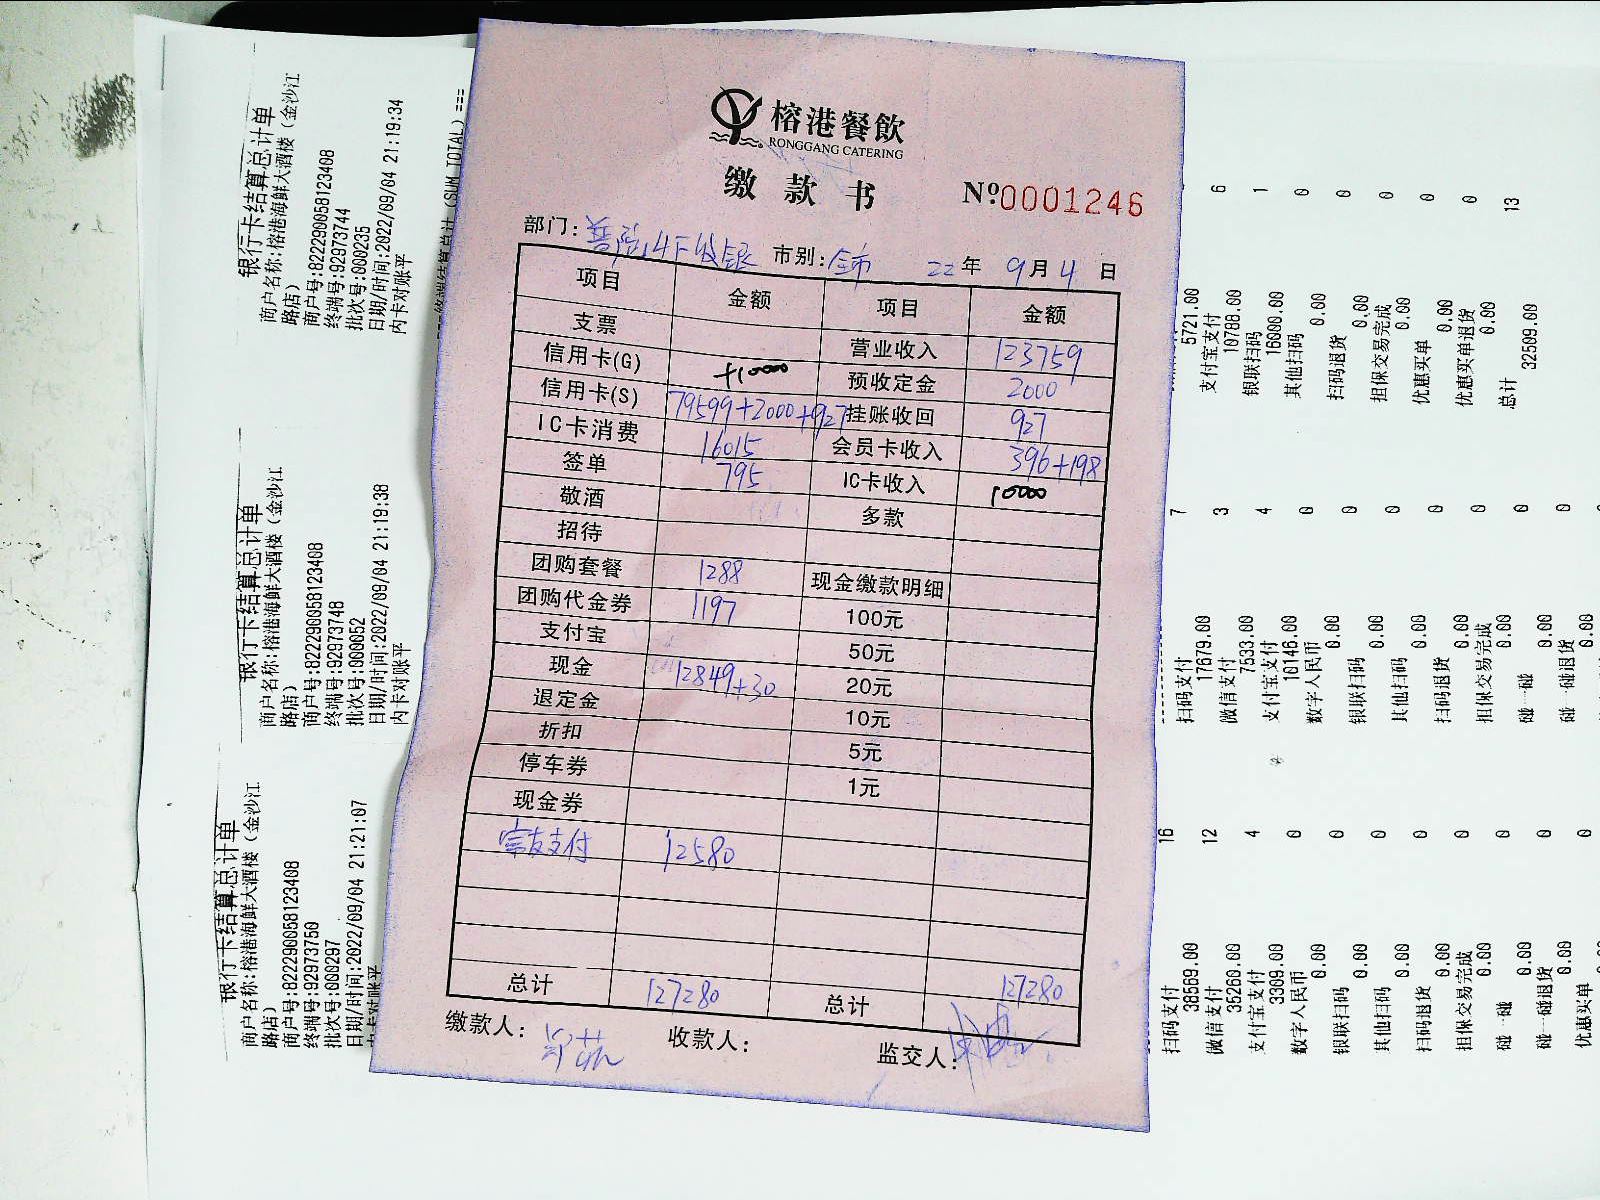 榕港餐飲
RONGGANG CATERING
缴款书
№0001246
部门: 市别: 全市 22年 9月 4日
项目 金额 项目 金额
支票 营业收入 123759
信用卡(G) +10000 预收定金 2000
信用卡(S) 79599+2000+927 挂账收回 927
IC卡消费 16015 会员卡收入 396+198
签单 795 IC卡收入 10000
敬酒 多款
招待
团购套餐 1288 现金缴款明细
团购代金券 1197 100元
支付宝 50元
现金 12849+30 20元
退定金 10元
折扣 5元
停车券 1元
现金券
支付 12580
总计 127280 总计 127280
缴款人: 收款人: 监交人:
银行卡结算总计单
商户名称:榕港海鲜大酒楼(金沙江
路店)
商户号:822290058123408
终端号:92973744
批次号:000235
日期/时间:2022/09/04 21:19:34
内卡对账平
(SUM TOTAL)===
银行卡结算总计单
商户名称:榕港海鲜大酒楼(金沙江
路店)
商户号:822290058123408
终端号:92973748
批次号:000052
日期/时间:2022/09/04 21:19:38
内卡对账平
银行卡结算总计单
商户名称:榕港海鲜大酒楼(金沙江
路店)
商户号:822290058123408
终端号:92973750
批次号:000297
日期/时间:2022/09/04 21:21:07
内卡对账平
5721.00
支付宝支付 6
10788.00
银联扫码 1
16000.00
其他扫码 0
0.00
扫码退货 0
0.00
担保交易完成 0
0.00
优惠买单 0
0.00
优惠买单退货 0
0.00
总计 13
32509.00
扫码支付 7
17679.00
微信支付 3
7533.00
支付宝支付 4
10146.00
数字人民币 0
0.00
银联扫码 0
0.00
其他扫码 0
0.00
扫码退货 0
0.00
担保交易完成 0
0.00
碰一碰 0
0.00
碰一碰退货 0
0.00
扫码支付 16
38569.00
微信支付 12
35260.00
支付宝支付 4
3309.00
数字人民币 0
0.00
银联扫码 0
0.00
其他扫码 0
0.00
扫码退货 0
0.00
担保交易完成 0
0.00
碰一碰 0
0.00
碰一碰退货 0
0.00
优惠买单 0